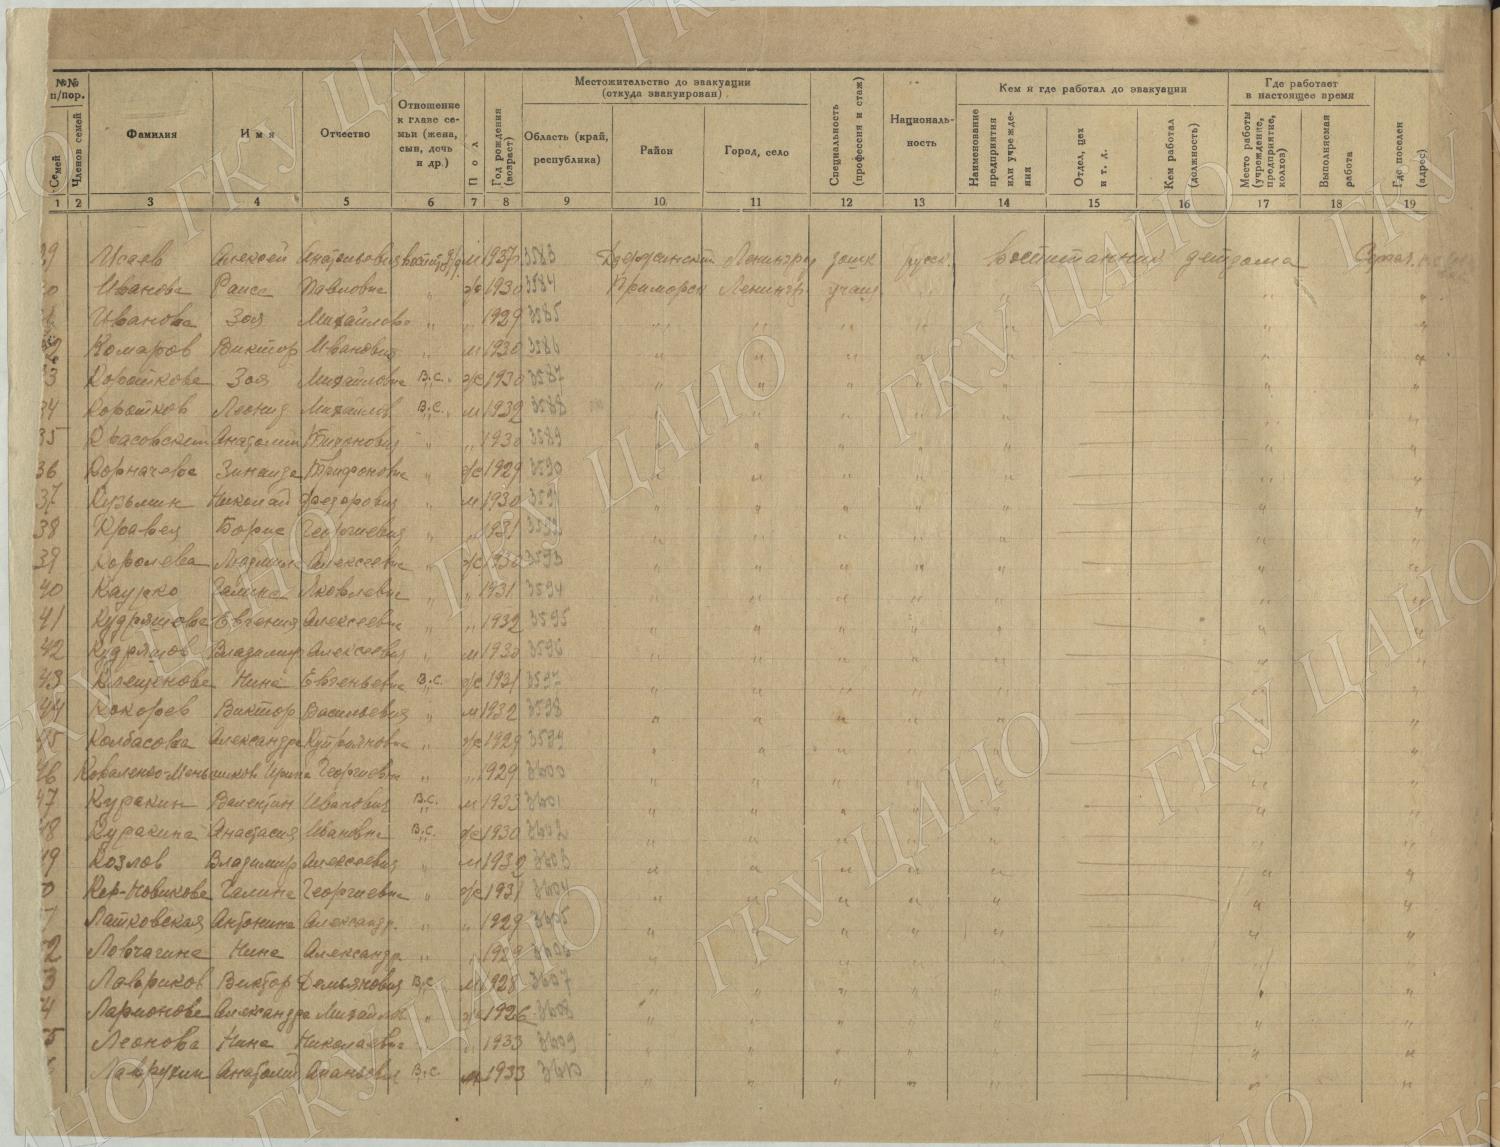 №№ п/пор.
Семей
Членов семей
Фамилия
Имя
Отчество
Отношение к главе семьи (жена, сын, дочь и др.)
Пол
Год рождения (возраст)
Местожительство до эвакуации (откуда эвакуирован)
Область (край, республика)
Район
Город, село
Специальность (профессия и стаж)
Националь-ность
Кем и где работал до эвакуации
Наименование предприятия или учреждения
Отдел, цех и т. д.
Кем работал (должность)
Где работает в настоящее время
Место работы (учреждение, предприятие, колхоз)
Выполняемая работа
Где поселен (адрес)
1 2 3 4 5 6 7 8 9 10 11 12 13 14 15 16 17 18 19
Исаев Алексей Анатольевич м 1937 3583 Дзержинский Ленинград русск. воспитанник детдома
Иванова Раиса Павловна " ж 1930 3584 Приморск Ленингр учащ
Иванова Зоя Михайлов " " 1929 3585
Комаров Виктор Иванович " м 1930 3586
Короткова Зоя Михайловна В.С. ж 1930 3587
34 Коротков Леонид Михайлов В.С. м 1932 3588
35 Красовский Анатолий " " 1930 3589
36 Зинаида Трифоновна " ж 1929 3590
37 Кузьмин Николай Федорович " м 1930 3591
38 Кравец Борис Георгиевич " 1931 3592
39 Королева Людмила Алексеевна " ж 1930 3593
40 Галина Яковлевна " " 1931 3594
41 Кудряшова Евгения Алексеевна " " 1932 3595
42 Кудряшов Владимир Алексеевич " м 1930 3596
43 Клещенова Нина Евгеньевна В.С. ж 1931 3597
44 Кокорев Виктор Васильевич " м 1932 3598
45 Колбасова Александра " ж 1929 3599
46 Коваленко-Меньшиков Ирина Георгиевн " " 1929 3600
47 Куракин Валентин Иванович В.С. м 1933 3601
48 Куракина Анастасия Ивановна В.С. ж 1930 3602
49 Козлов Владимир Алексеевич " м 1932 3603
Кор-Новикова Галина Георгиевна " ж 1931 3604
Латковская Антонина Александр. " " 1929 3605
Ловчагина Нина Александр " " 1929 3606
Лавриков Виктор Демьянович В.С. м 1928 3607
Ларионова Александра Михайлов " ж 1926 3608
Леонова Нина Николаевна " " 1933 3609
Лаврухин Анатолий В.С. м 1933 3610
ГКУ ЦАНО